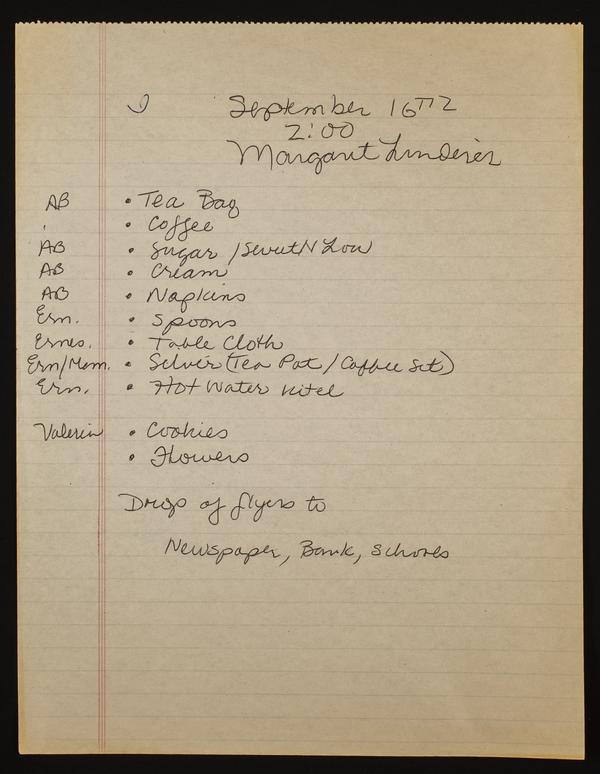 September 16TH
2:00
Margaret
AB • Tea Bag
• Coffee
AB • Sugar / Sweet N Low
AB • Cream
AB • Napkins
Ern. • Spoons
Ernes. • Table Cloth
Ern/Mom. • Silver (Tea Pot / Coffee Set)
Ern. • Hot Water Kitel
Valerie • Cookies
• Flowers
Drop of flyers to
Newspaper, Bank, Schools